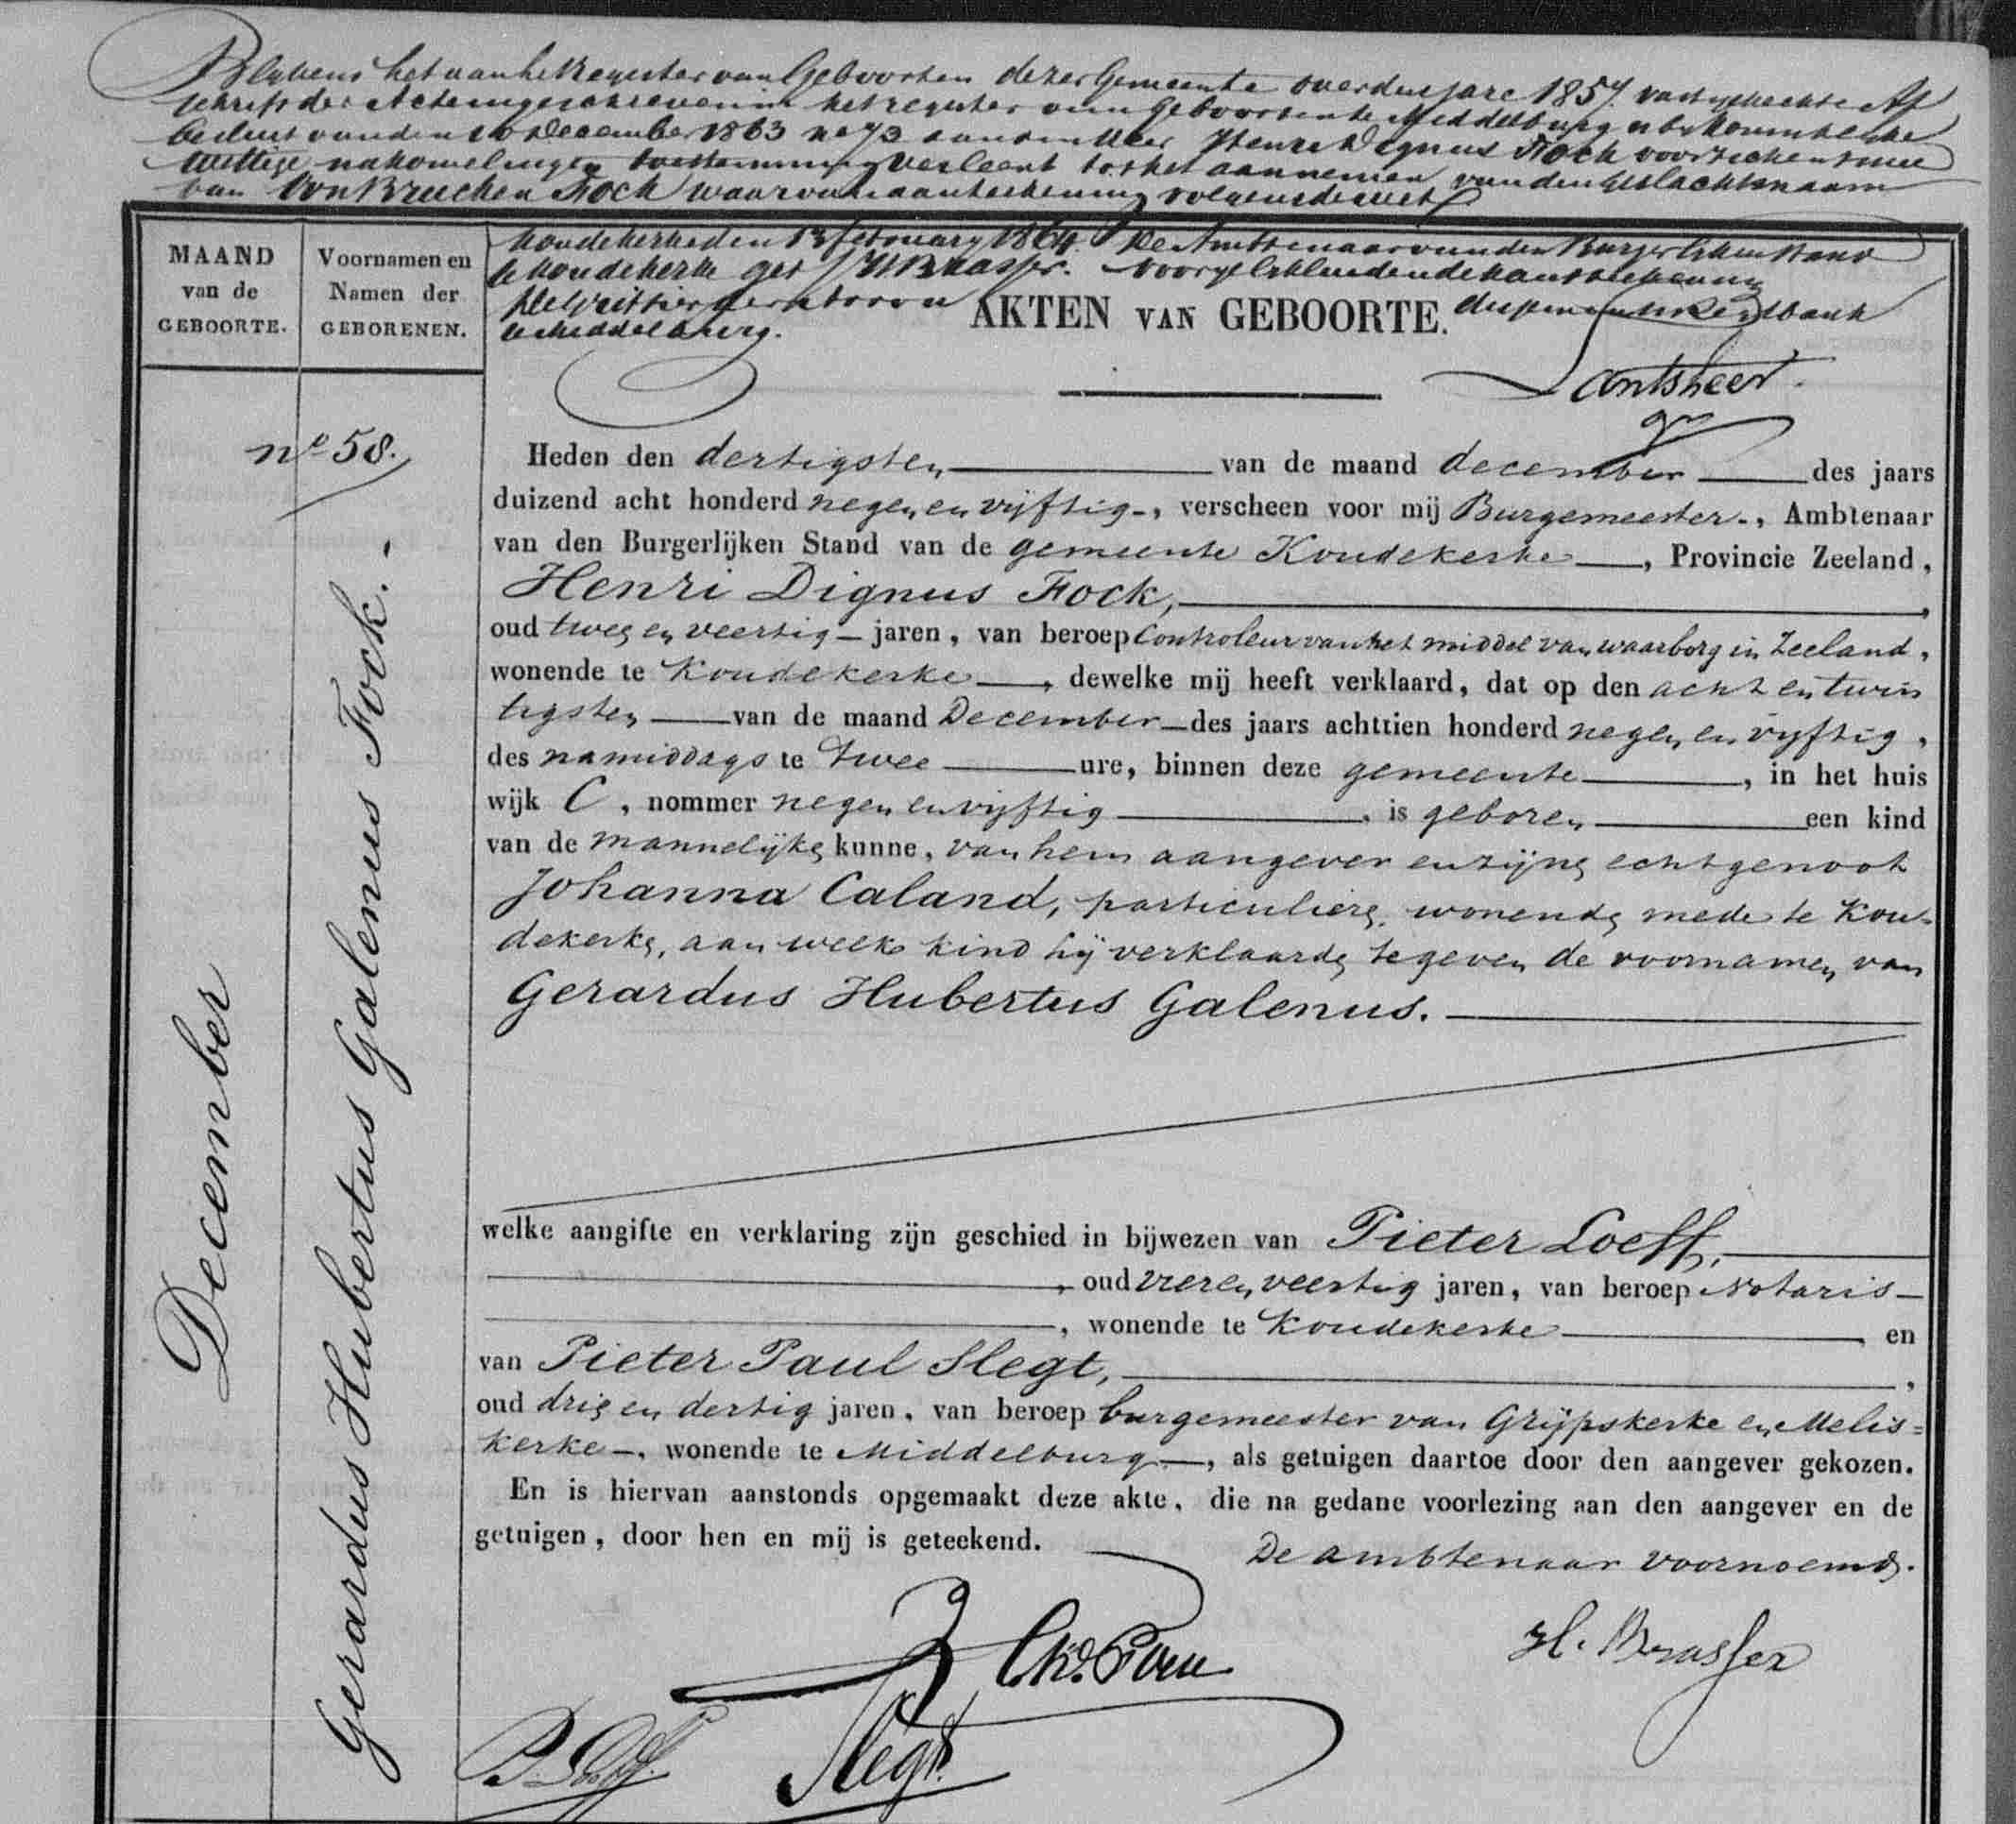 Blykens het aan het Register van Geboorten dezer Gemeente over den jare 1857 vastgehechte Af
schrift der Acte ingeschreven in het register van Geboorten te Middelburg is by Koninklyke
besluit van den 10 December 1863 no 73 aan den Heer Henri Dignus Fock voor zich en zyne
wettige nakomelingen toestemming verleent tot het aannemen van den Geslachtsnaam
van Von Brucken Fock waarvan aanteekening volgens de wet
MAAND
van de
GEBOORTE.
Voornamen en
Namen der
GEBORENEN.
Koudekerke den 13 february 1864 De Ambtenaar van den Burgerlyken Stand
te Koudekerke get H Brasser. voor gelykluidende aanteekening
De Griffier der Arrond
te Middelburg.
AKTEN VAN GEBOORTE.
Rechtbank
Lantsheer.
gr
no 58.
December
Gerardus Hubertus Galenus Fock.
Heden den dertigsten van de maand december des jaars
duizend acht honderd negen en vijftig, verscheen voor mij Burgemeester, Ambtenaar
van den Burgerlijken Stand van de gemeente Koudekerke, Provincie Zeeland,
Henri Dignus Fock,
oud twee en veertig jaren, van beroep Controleur van het middel van waarborg in Zeeland,
wonende te Koudekerke, dewelke mij heeft verklaard, dat op den acht en twin
tigsten van de maand December des jaars achttien honderd negen en vijftig,
des namiddags te twee ure, binnen deze gemeente, in het huis
wijk C, nommer negen en vijftig, is geboren een kind
van de mannelijke kunne, van hem aangever en zijne echtgenoot
Johanna Caland, particuliere, wonende mede te Kou-
dekerke, aan welk kind hij verklaarde te geven de voornamen van
Gerardus Hubertus Galenus.
welke aangifte en verklaring zijn geschied in bijwezen van Pieter Loeff,
, oud vier en veertig jaren, van beroep Notaris
, wonende te Koudekerke en
van Pieter Paul Slegt,
oud drie en dertig jaren, van beroep burgemeester van Grijpskerke en Melis=
kerke, wonende te Middelburg, als getuigen daartoe door den aangever gekozen.
En is hiervan aanstonds opgemaakt deze akte, die na gedane voorlezing aan den aangever en de
getuigen, door hen en mij is geteekend.
De ambtenaar voornoemd.
H. Brasser
P. Loeff.
Slegt.